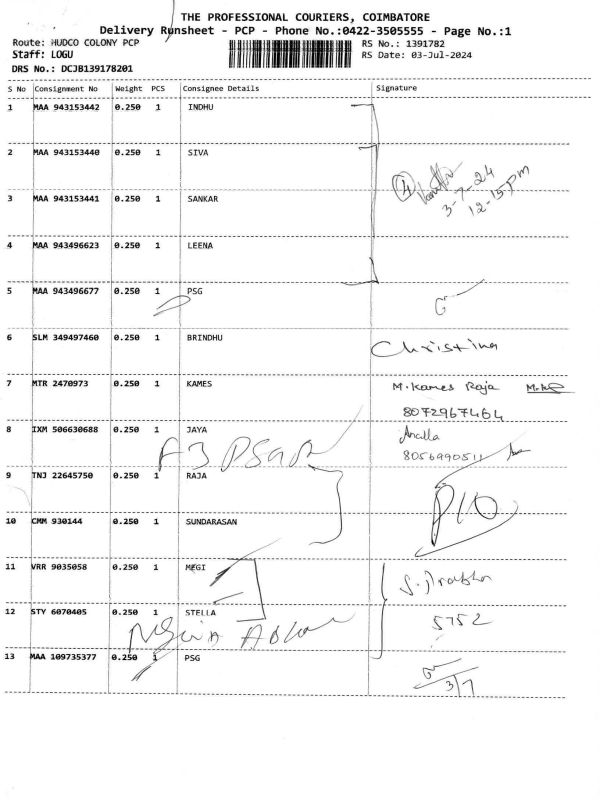 THE PROFESSIONAL COURIERS, COIMBATORE
Delivery Runsheet - PCP - Phone No.:0422-3505555 - Page No.:1
Route: HUDCO COLONY PCP
RS No.: 1391782
Staff: LOGU
RS Date: 03-Jul-2024
DRS No.: DCJB139178201
S No Consignment No Weight PCS Consignee Details Signature
1 MAA 943153442 0.250 1 INDHU
2 MAA 943153440 0.250 1 SIVA
4
3-7-24
12-15pm
3 MAA 943153441 0.250 1 SANKAR
4 MAA 943496623 0.250 1 LEENA
5 MAA 943496677 0.250 1 PSG
6 SLM 349497460 0.250 1 BRINDHU
Christina
7 MTR 2470973 0.250 1 KAMES
M.Kames Raja
8072967464
8 IXM 506630688 0.250 1 JAYA
8056990511
9 TNJ 22645750 0.250 1 RAJA
10 CMM 930144 0.250 1 SUNDARASAN
11 VRR 9035058 0.250 1 MEGI
12 STY 6070405 0.250 1 STELLA
5752
13 MAA 109735377 0.250 1 PSG
3/7